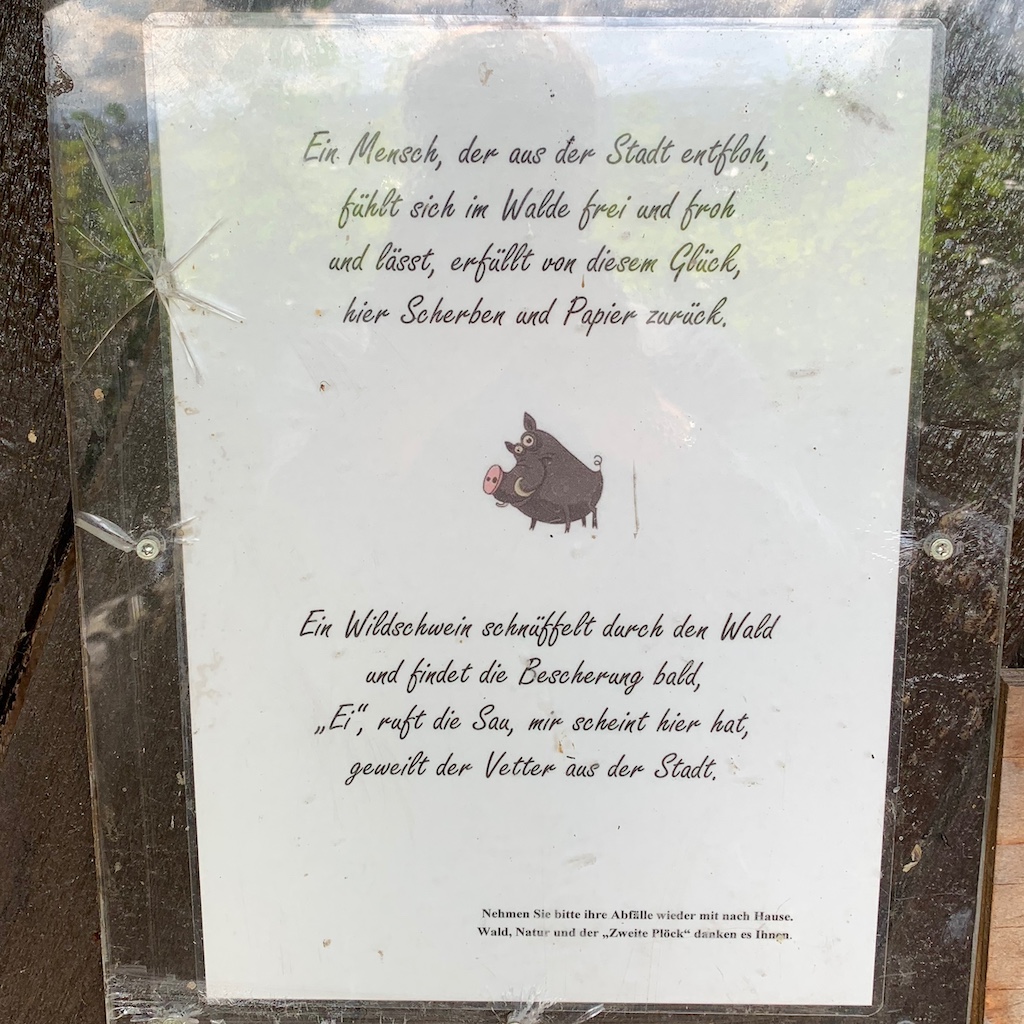 Ein Mensch, der aus der Stadt entfloh,
fühlt sich im Walde frei und froh
und lässt, erfüllt von diesem Glück,
hier Scherben und Papier zurück.
Ein Wildschwein schnüffelt durch den Wald
und findet die Bescherung bald,
„Ei“, ruft die Sau, mir scheint hier hat,
geweilt der Vetter aus der Stadt.
Nehmen Sie bitte ihre Abfälle wieder mit nach Hause.
Wald, Natur und der „Zweite Plöck“ danken es Ihnen.